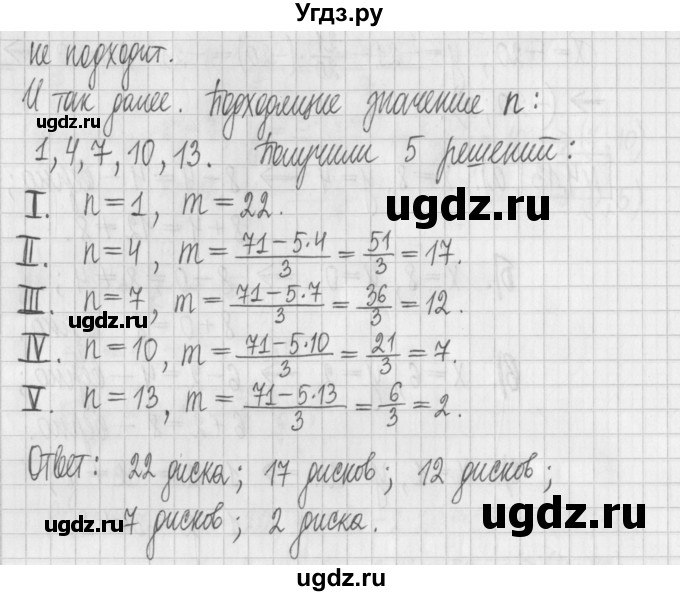 Угдз.ру
не подходит.
И так далее. Подходящие значение n:
ugdz.ru
1, 4, 7, 10, 13. Получили 5 решений:
I. n=1, m=22.
ugdz.ru
II. n=4, m=\frac{71-5·4}{3}=\frac{51}{3}=17.
III. n=7, m=\frac{71-5·7}{3}=\frac{36}{3}=12.
ugdz.ru
IV. n=10, m=\frac{71-5·10}{3}=\frac{21}{3}=7.
V. n=13, m=\frac{71-5·13}{3}=\frac{6}{3}=2.
Ответ: 22 диска; 17 дисков; 12 дисков;
ugdz.ru
7 дисков; 2 диска.
ugdz.ru
ugdz.ru